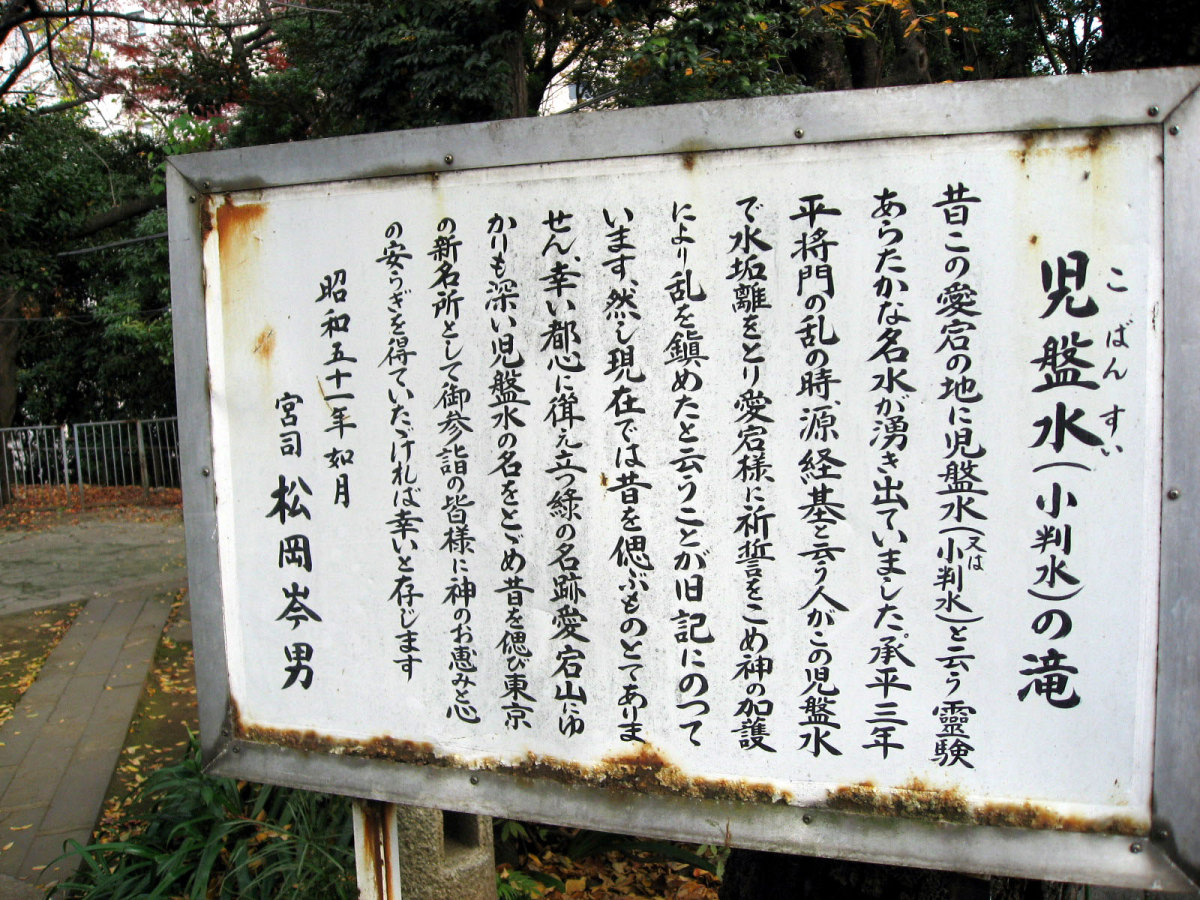 児盤水(小判水)の滝
こばんすい
昔この愛宕の地に児盤水(又は小判水)と云う霊験
あらたかな名水が湧き出ていました。承平三年
平将門の乱の時、源経基と云う人がこの児盤水
で水垢離をとり愛宕様に祈誓をこめ神の加護
により乱を鎮めたと云うことが旧記にのつて
います。然し現在では昔を偲ぶものとてありま
せん、幸い都心に聳え立つ緑の名跡愛宕山にゆ
かりも深い児盤水の名をとゞめ昔を偲び東京
の新名所として御参詣の皆様に神のお恵みと心
の安らぎを得ていたゞければ幸いと存じます
昭和五十一年如月
宮司 松岡岑男